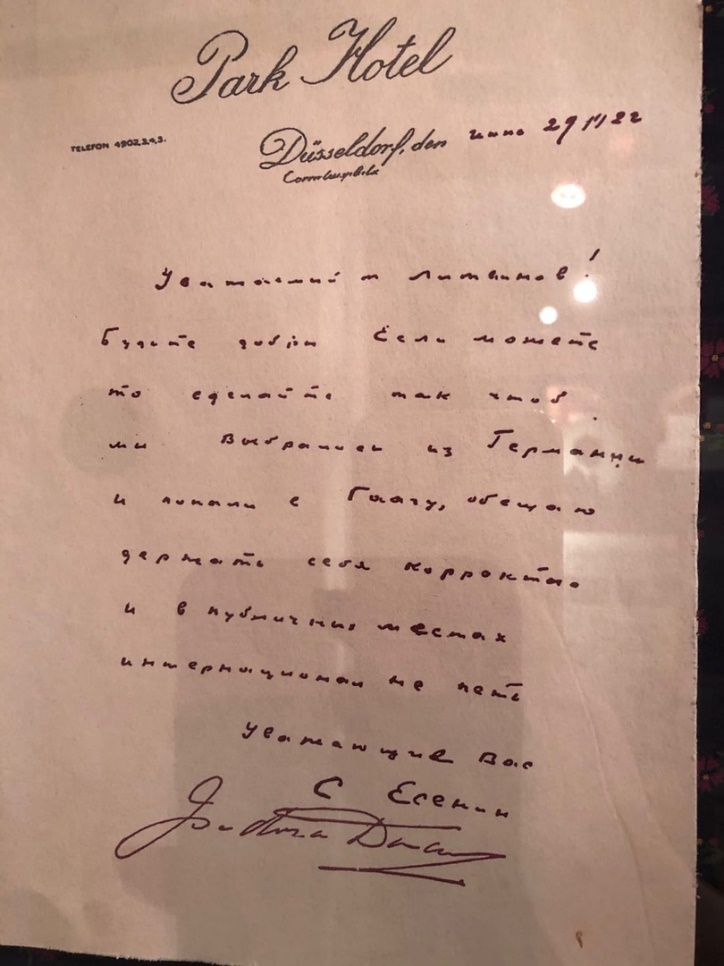 Park Hotel
TELEFON 4902,3,4,5.
Düsseldorf, den июнь 29 1922
Corneliusplatz
Уважаемый т Литвинов!
Будте добры Если можете
то сделайте так чтоб
мы выбрались из Германии
и попали в Гаагу, обещаю
держать себя корректно
и в публичных местах
интернационал не петь
Уважающие Вас
С Есенин
Isadora Duncan